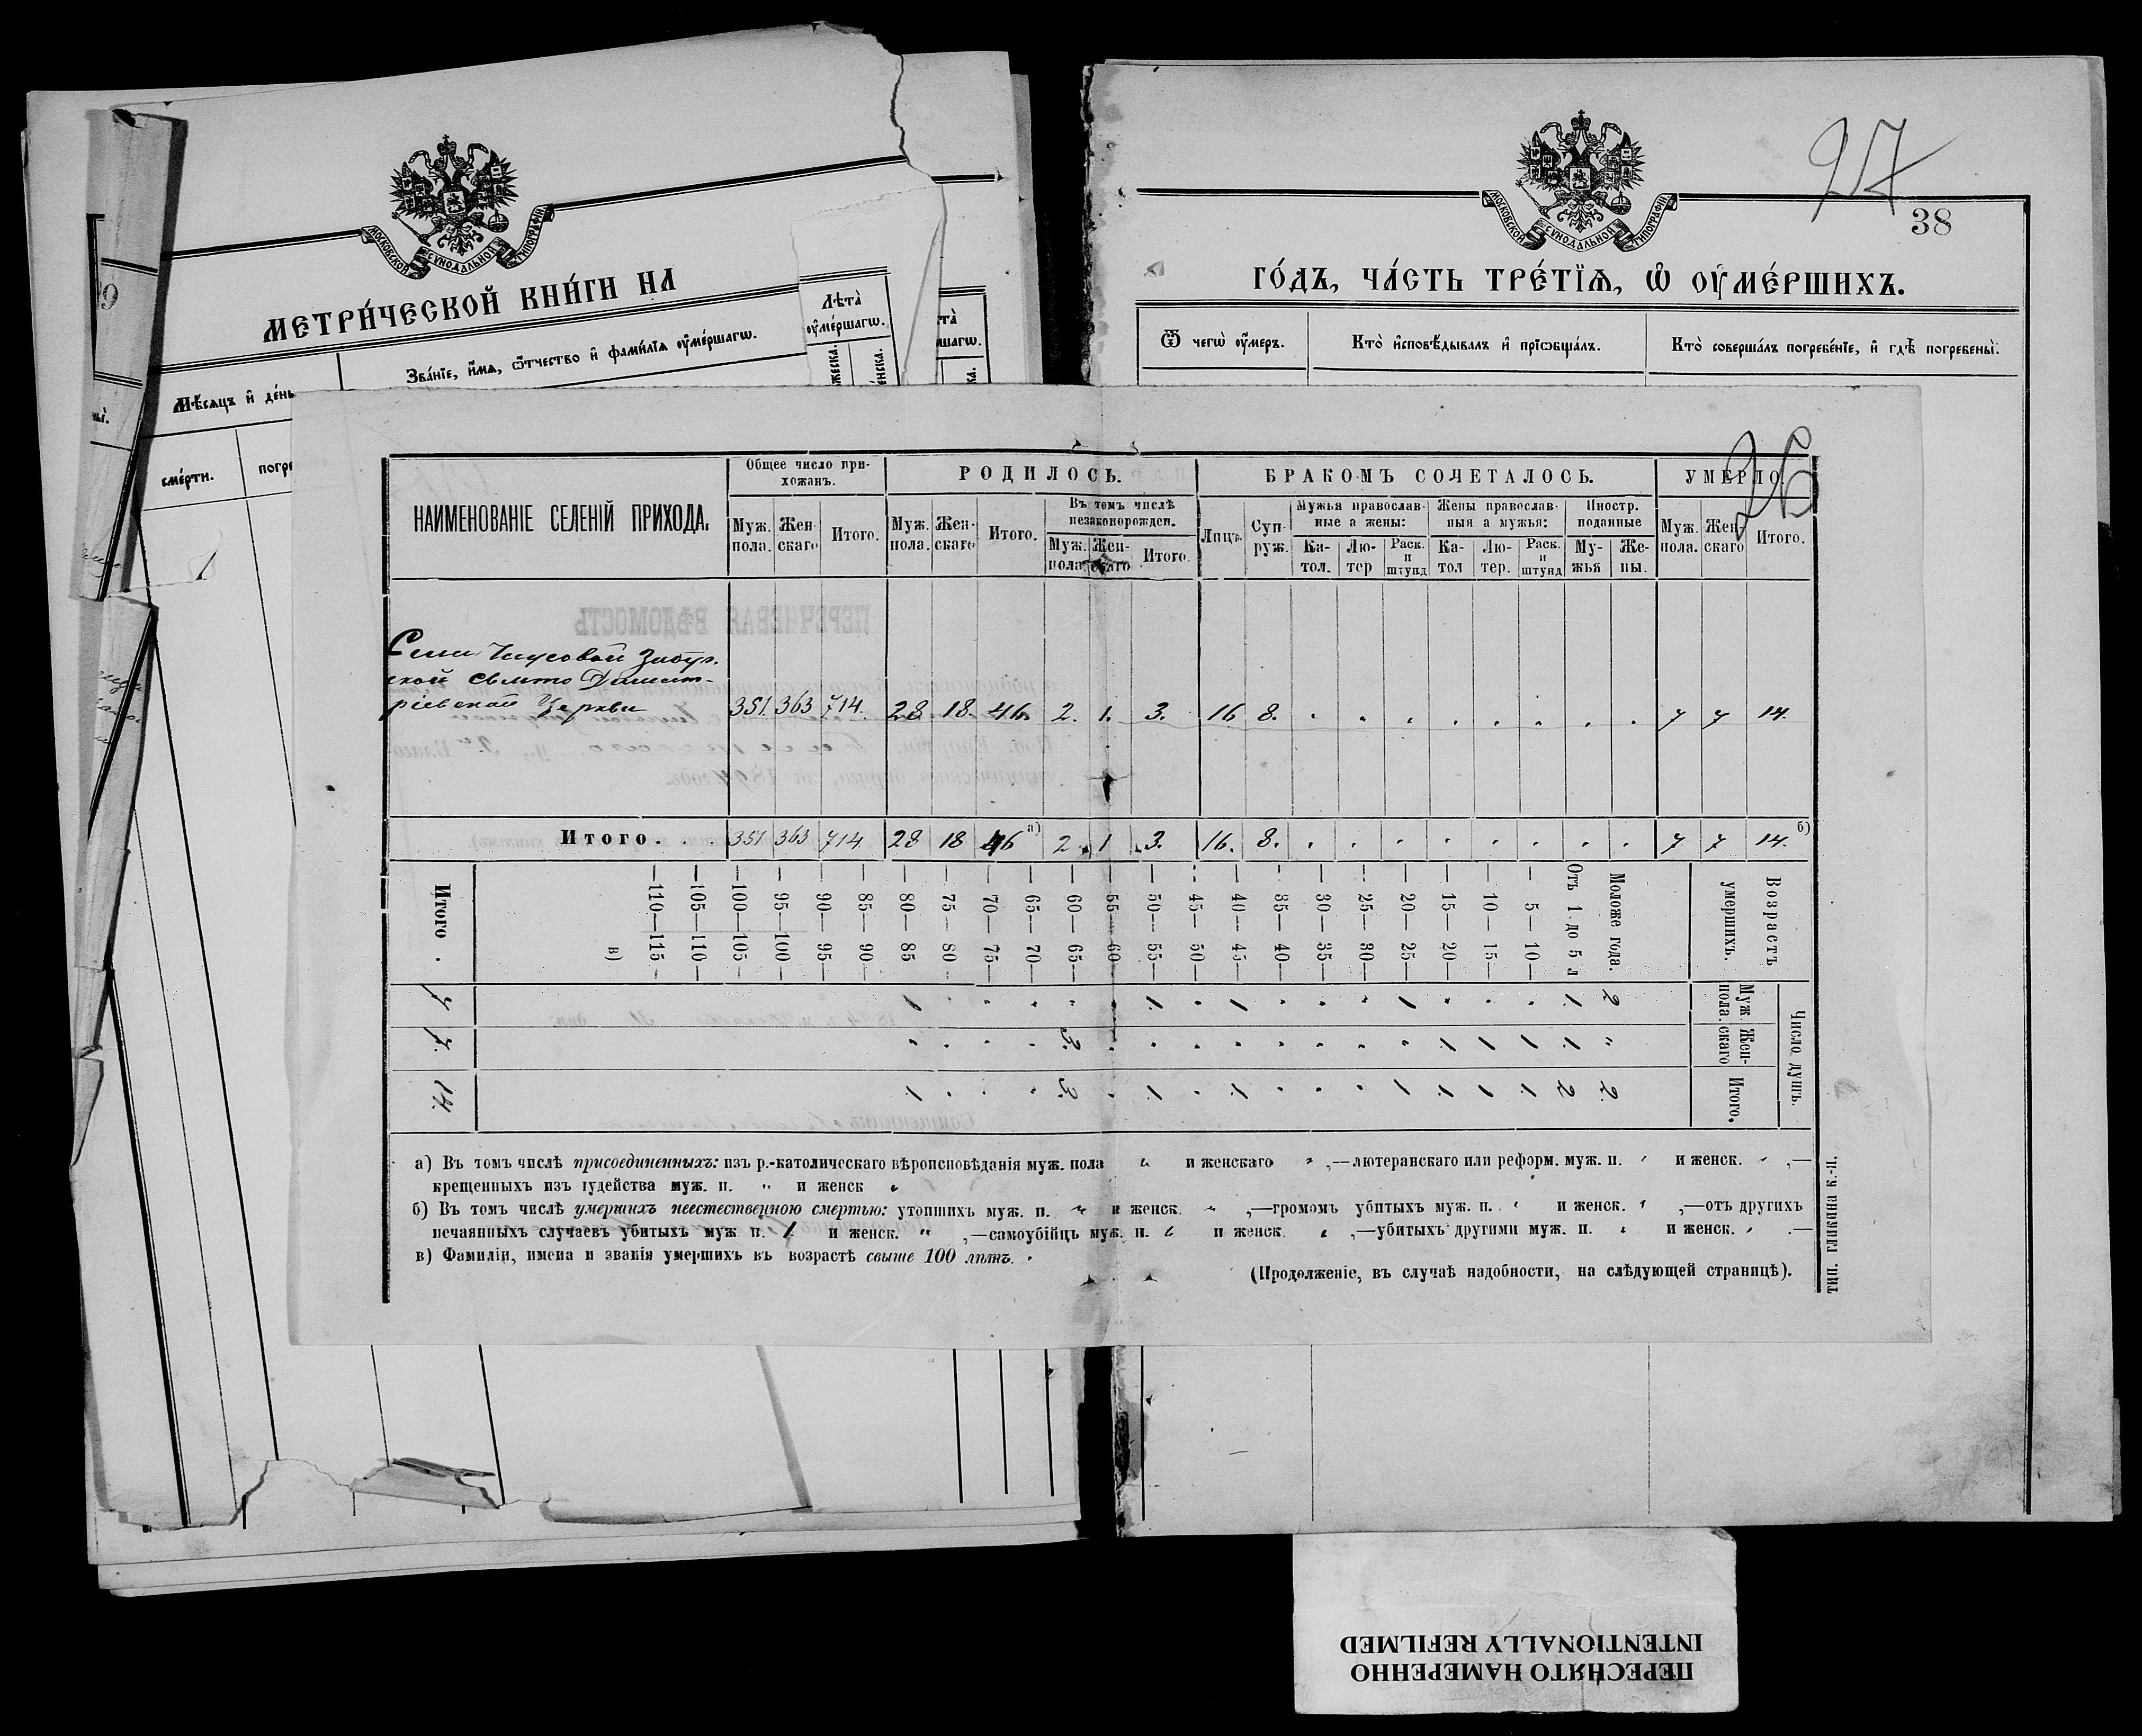 МОСКОВСКОЙ СѴНОДАЛЬНОЙ ТИПОГРАФІИ
МЕТРИ́ЧЕСКОЙ КНИ́ГИ НА
Мѣ́сяцъ и҆ де́нь
сме́рти.
погре
Зва́нїе, и҆́мѧ, ѻ҆́тчество и҆ фами́лїѧ ᲂу҆ме́ршагѡ.
Лѣ́та
ᲂу҆ме́ршагѡ.
МОСКОВСКОЙ СѴНОДАЛЬНОЙ ТИПОГРАФІИ
27
38
ГО́ДЪ, ЧА́СТЬ ТРЕ́ТЇѦ, Ѡ҆ ОУ҆МЕ́РШИХЪ.
Ѿ чегѡ̀ ᲂу҆́меръ.
Кто̀ и҆сповѣ́дывалъ и҆ прїѡбща́лъ.
Кто̀ соверша́лъ погребе́нїе, и҆ гдѣ̀ погребены̀.
26
НАИМЕНОВАНІЕ СЕЛЕНІЙ ПРИХОДА.
Общее число при-
хожанъ.
Муж. пола.
Жен- скаго
Итого.
РОДИЛОСЬ.
Муж. пола.
Жен- скаго
Итого.
Въ томъ числѣ
незаконорожден.
Муж. пола.
Жен- скаго
Итого.
БРАКОМЪ СОЧЕТАЛОСЬ.
Лицъ.
Суп- руж.
Мужья православ-
ные а жены:
Ка- тол.
Лю- тер
Раск. и штунд
Жены православ-
ныя а мужья:
Ка- тол
Лю- тер.
Раск. и штунд
Иностр.
поданные
Му- жья
Же- ны.
УМЕРЛО.
Муж. пола.
Жен- скаго
Итого.
ской свято Димит-
ріевской Церкви 351. 363 714. 28. 18. 46. 2. 1. 3. 16 8. . . . . . . . . 7 7 14.
Итого. . . 351 363 714 28 18 46 а) 2. 1 3. 16. 8. . . . . . . . . 7 7 14. б)
Возрастъ
умершихъ.
Число душъ.
Муж. пола.
Жен- скаго
Итого.
Моложе года. 2 " 2.
Отъ 1 до 5 л 1. 1. 2
— 5 — 10— . 1 1.
— 10— 15— . 1 1
— 15— 20— . 1. 1.
— 20— 25— 1 . 1
— 25— 30— . . .
— 30— 35— . . .
— 35— 40— . . .
— 40— 45— 1 . 1.
— 45— 50— . . .
— 50— 55— 1. . 1.
— 55— 60— . . .
— 60— 65— . 3. 3.
— 65— 70— . . .
— 70— 75— . . .
— 75— 80— . . .
— 80— 85 1 . 1.
— 85— 90—
— 90— 95—
— 95—100—
—100—105—
—105—110—
—110—115—
в)
Итого . 7 7. 14.
а) Въ томъ числѣ присоединенныхъ: изъ р.-католическаго вѣроисповѣданія муж. пола " и женскаго " ,—лютеранскаго или реформ. муж. п. " и женск. " ,—
крещенныхъ изъ іудейства муж. п. " и женск "
б) Въ томъ числѣ умершихъ неестественною смертью: утопшихъ муж. п. " и женск. " ,—громомъ убитыхъ муж. п. " и женск. " ,—отъ другихъ
нечаянныхъ случаевъ убитыхъ муж п. 1. и женск. " ,—самоубійцъ муж. п. " и женск. " ,—убитыхъ другими муж. п. " и женск. " .—
в) Фамиліи, имена и званія умершихъ въ возрастѣ свыше 100 лѣтъ.
(Продолженіе, въ случаѣ надобности, на слѣдующей страницѣ).
тип. гликина к.-п.
ПЕРЕСНЯТО НАМЕРЕННО
INTENTIONALLY REFILMED